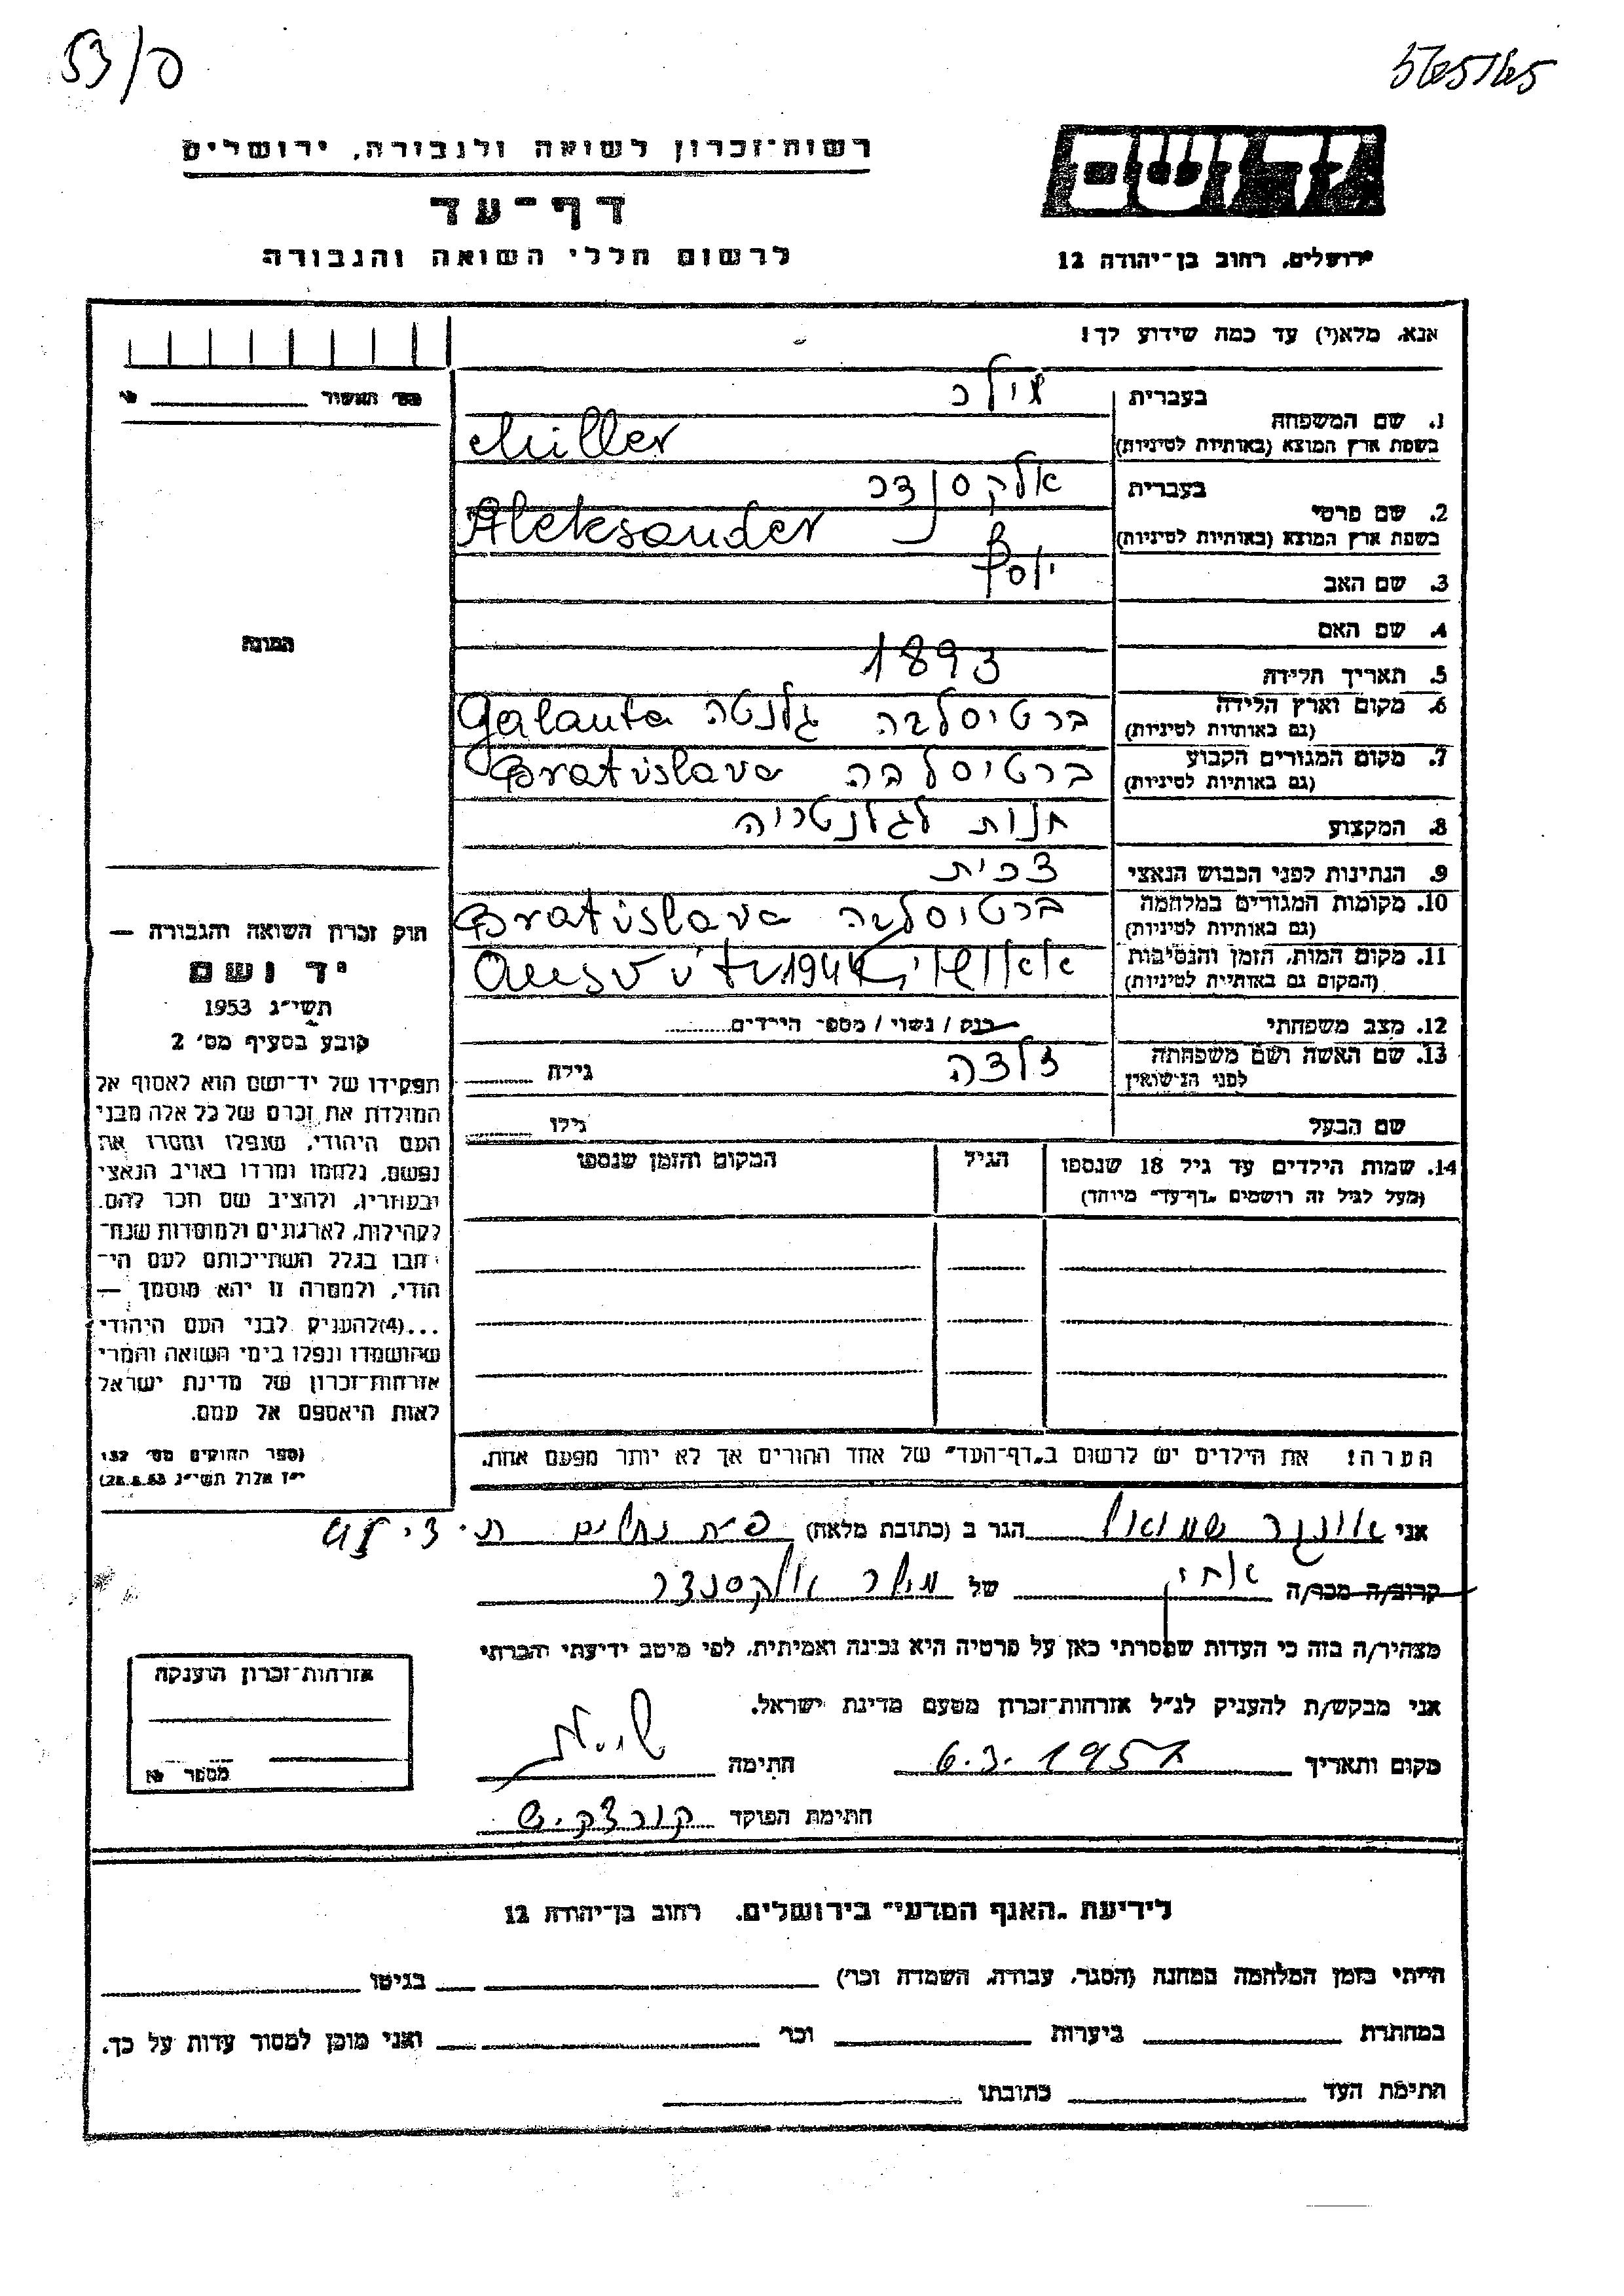 53/ס
רשות־זכרון לשואה ולגבורה, ירושלים
דף־עד
לרשום חללי השואה והגבורה
יד ושם
ירושלים, רחוב בן־יהודה 12
אנא, מלא(י) עד כמה שידוע לך!
1. שם המשפחה
בעברית מילר
בשפת ארץ המוצא (באותיות לטיניות) Miller
2. שם פרטי
בעברית אלקסנדר
בשפת ארץ המוצא (באותיות לטיניות) Aleksander
3. שם האב יוסף
4. שם האם
5. תאריך הלידה 1893
6. מקום וארץ הלידה ברטיסלבה גלנטה Galanta
(גם באותיות לטיניות)
7. מקום המגורים הקבוע ברטיסלבה Bratislava
(גם באותיות לטיניות)
8. המקצוע חנות לגלנטריה
9. הנתינות לפני הכבוש הנאצי צ'כית
10. מקומות המגורים במלחמה ברטיסלבה Bratislava
(גם באותיות לטיניות)
11. מקום המות, הזמן והנסיבות 1944
(המקום גם באותיות לטיניות)
12. מצב משפחתי רווק / נשוי / מספר הילדים
13. שם האשה ושם משפחתה
לפני הנישואין
גילה
שם הבעל גילו
14. שמות הילדים עד גיל 18 שנספו הגיל המקום והזמן שנספו
(מעל לגיל זה רושמים „דף־עד" מיוחד)
הערה! את הילדים יש לרשום ב„דף־העד" של אחד ההורים אך לא יותר מפעם אחת.
מס' האשור
תמונה
חוק זכרון השואה והגבורה —
יד ושם
תשי"ג 1953
קובע בסעיף מס' 2
תפקידו של יד־ושם הוא לאסוף אל
המולדת את זכרם של כל אלה מבני
העם היהודי, שנפלו ומסרו את
נפשם, נלחמו ומרדו באויב הנאצי
ובעוזריו, ולהציב שם וזכר להם,
לקהילות, לארגונים ולמוסדות שנח־
רבו בגלל השתייכותם לעם הי־
הודי, ולמטרה זו יהא מוסמך —
...(4)להעניק לבני העם היהודי
שהושמדו ונפלו בימי השואה והמרי
אזרחות־זכרון של מדינת ישראל
לאות היאספם אל עמם.
(ספר החוקים מס' 132
י"ז אלול תשי"ג 28.8.53)
אני אונגר שמואל הגר ב (כתובת מלאה)
קרוב/ה מכר/ה של מילר אלקסנדר
מצהיר/ה בזה כי העדות שמסרתי כאן על פרטיה היא נכונה ואמיתית, לפי מיטב ידיעתי והכרתי
אני מבקש/ת להעניק לנ"ל אזרחות־זכרון מטעם מדינת ישראל.
מקום ותאריך 6.3.1957 חתימה
חתימת הפוקד
אזרחות־זכרון הוענקה
מספר
לידיעת „האגף המדעי" בירושלים, רחוב בן־יהודה 12
הייתי בזמן המלחמה במחנה (הסגר, עבודה, השמדה וכו') בגיטו
במחתרת ביערות וכו' ואני מוכן למסור עדות על כך.
חתימת העד כתובתו